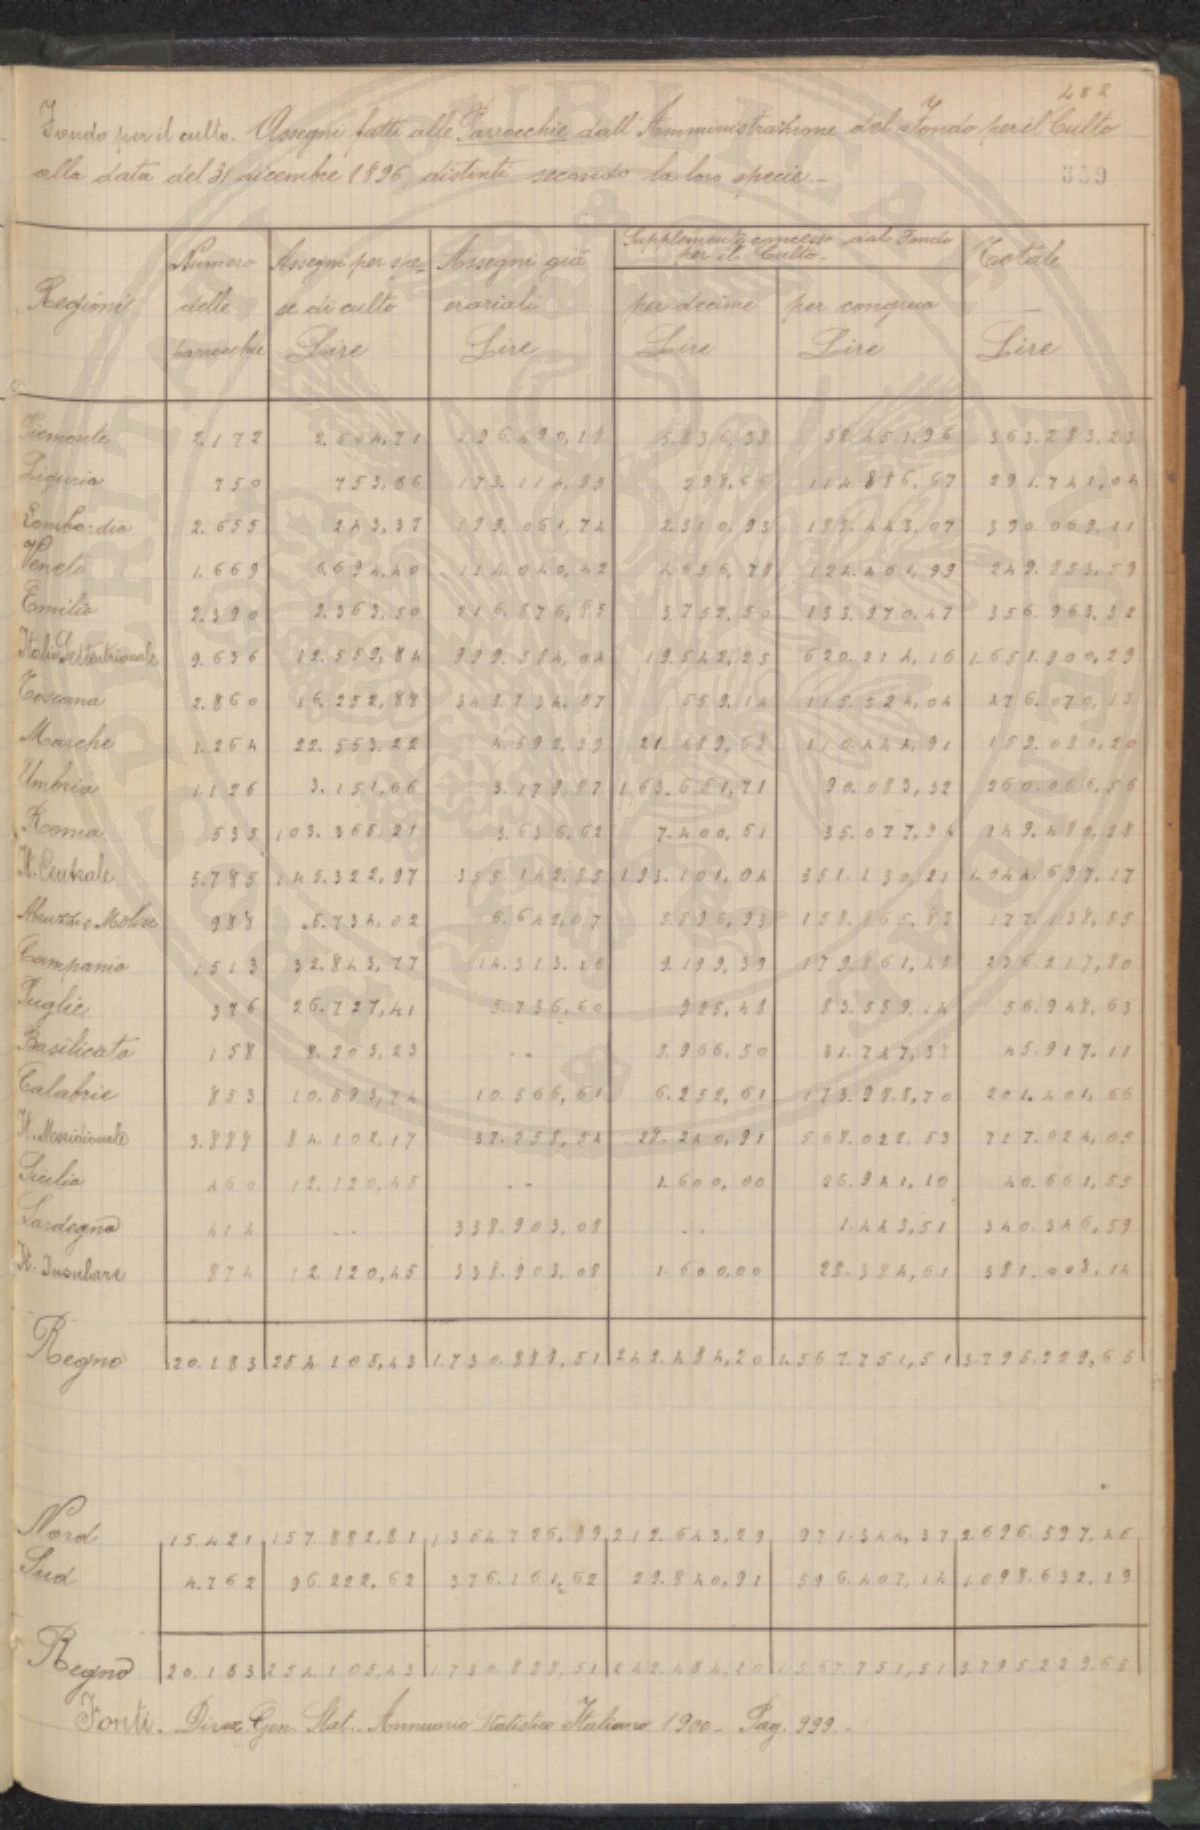 482
Fondo per il culto. Assegni fatti alle Parrocchie dall'Amministrazione del Fondo per il Culto
alla data del 31 dicembre 1896, distinti secondo la loro specie.-
339
Regioni Numero delle parrocchie Assegni per spese di culto Lire Assegni già erariali Lire Supplemento concesso dal Fondo per il Culto- per decime Lire per congrua Lire Totale Lire
Piemonte 2.172 2.504,71 296.490,18 5.836,38 58.451,96 363.283,23
Liguria 750 753,86 173.114,85 298,66 114.886,67 291.741,04
Lombardia 2.655 243,37 199.061,74 2.310,93 199.443,07 390.069,11
Veneto 1.669 6.694,40 114.040,42 4.636,78 124.461,99 249.853,59
Emilia 2.390 2.363,50 216.876,85 3.752,50 133.970,47 356.963,32
Italia Settentrionale 9.636 12.559,84 999.584,04 19.542,25 620.214,16 1.651.900,29
Toscana 2.860 16.252,88 343.734,87 559,14 115.524,04 476.070,13
Marche 1.264 22.553,22 4.592,39 21.489,68 110.444,91 159.080,20
Umbria 1.126 3.151,66 3.179,87 163.651,71 90.083,32 260.066,56
Roma 535 103.365,21 3.636,62 7.400,61 35.077,94 149.480,28
It. Centrale 5.785 145.322,97 355.142,85 193.101,04 351.130,21 1.044.697,17
Abruzzi e Molise 988 5.734,02 6.642,07 5.896,93 158.865,83 177.138,85
Campania 1513 32.843,77 14.313,16 9.199,39 179.861,48 236.217,80
Puglie 376 26.727,41 5.736,60 925,48 83.559,14 56.948,63
Basilicata 158 8.203,23 .. 5.966,50 31.747,38 45.917,11
Calabrie 853 10.593,74 10.566,61 6.252,61 173.988,70 201.401,66
It. Meridionale 3.888 84.102,17 37.258,54 28.240,91 568.022,53 717.624,05
Sicilia 460 12.120,45 .. 1.600,00 26.941,10 40.661,55
Sardegna 414 .. 338.903,08 .. 1.443,51 340.346,59
It. Insulare 874 12.120,45 338.903,08 1.600,00 28.384,61 381.008,14
Regno 20.183 254.105,43 1.730.888,51 242.484,20 1.567.751,51 3.795.229,65
Nord 15.421 157.882,81 1354.726,89 212.643,29 971.344,37 2.696.597,46
Sud 4.762 96.222,62 376.161,62 29.840,91 596.407,14 1.098.632,19
Regno 20.183 254.105,43 1730.888,51 242.484,20 1.567.751,51 3795229,65
Fonti. Direz. Gen. Stat. Annuario Statistico Italiano 1900- Pag. 999-